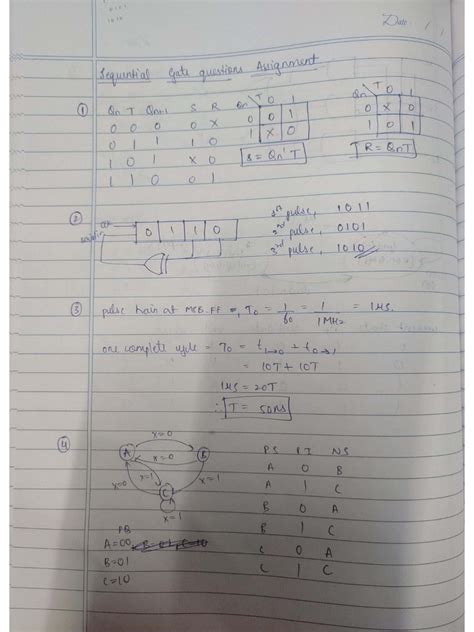 Date / /
Sequential Gate questions Assignment
① Qn T Qn+1 S R
0 0 0 0 X
0 1 1 1 0
1 0 1 X 0
1 1 0 0 1
Qn T 0 1
0 0 1
1 X 0
S = Qn' T
Qn T 0 1
0 X 0
1 0 1
R = QnT
② clk
0 1 1 0
1st pulse, 1011
2nd pulse, 0101
3rd pulse, 1010
③ pulse train at MSB FF =, T0 = 1/f0 = 1/1MHz = 1μs.
one complete cycle = T0 = t1→0 + t0→1
= 10T + 10T
1μs = 20T
∴ T = 50ns
④ x=0
A B
x=0
x=1
x=0 C x=1
x=1
A=00
B=01
C=10
PS IT NS
A 0 B
A 1 C
B 0 A
B 1 C
C 0 A
C 1 C